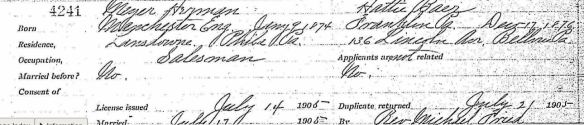 4241 Meyer Hyman Hattie Baer
Born Manchester Eng Jany 9, 1874 Franklin Pa. Dec 17, 1876
Residence, Lansdowne, Phila Pa. 136 Lincoln Av, Bellevue Pa.
Occupation, Salesman Applicants are not related
Married before? No. No.
Consent of
License issued July 14 1905 Duplicate returned July 21 1905
Married July 17 1905 By Rev Michael Fried